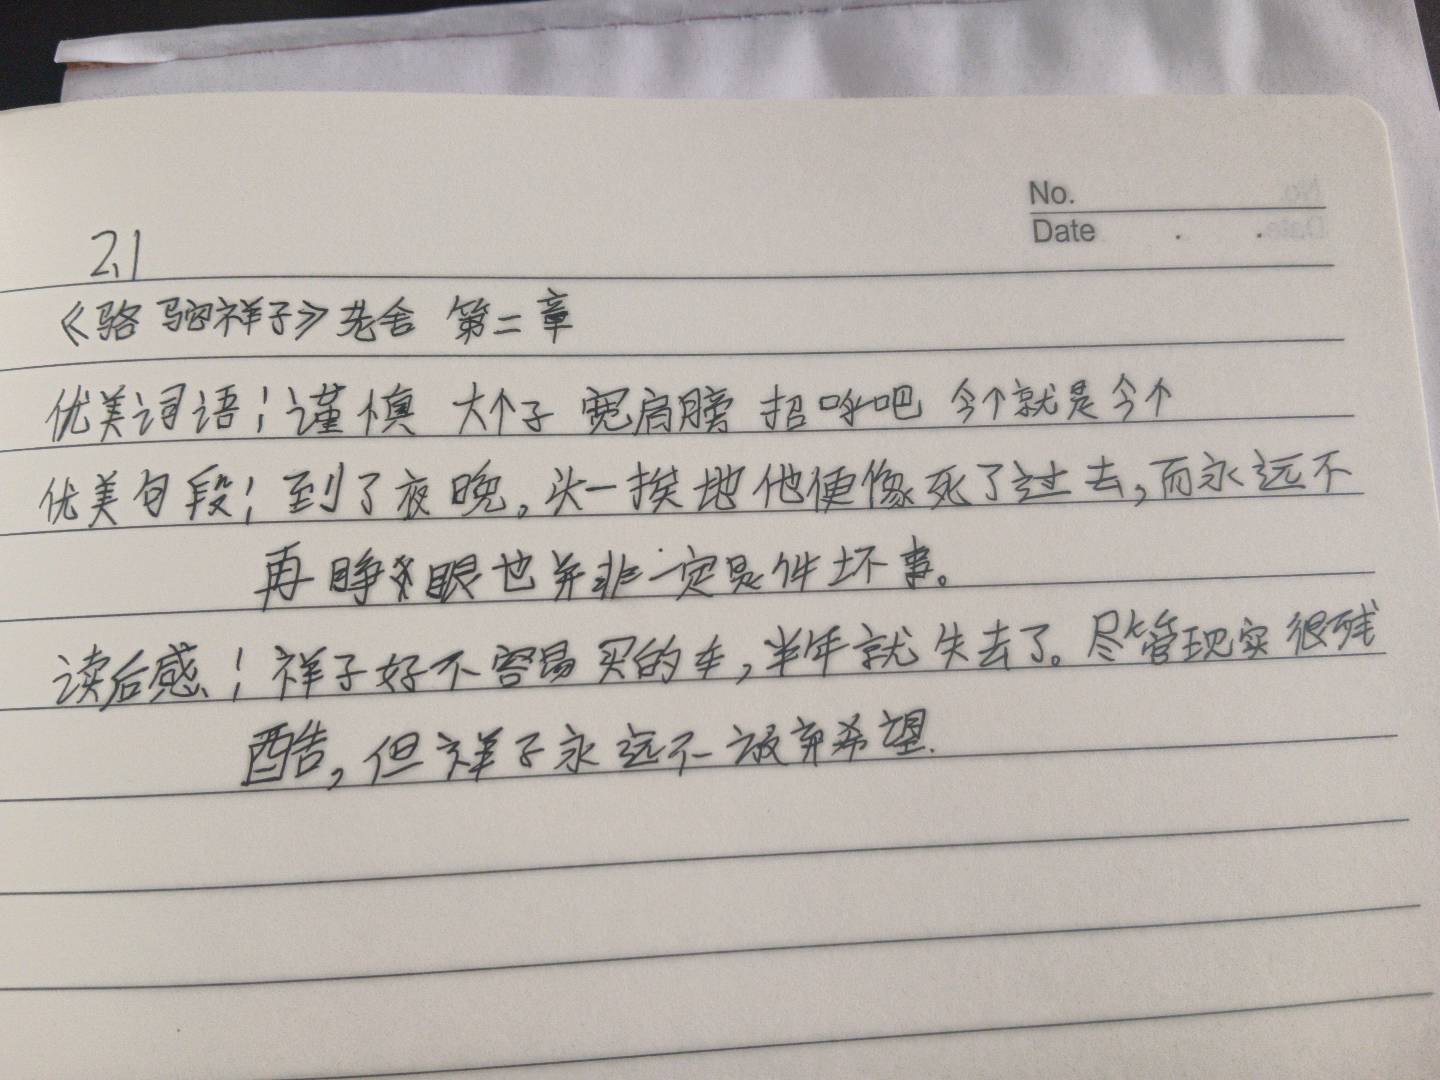 No.
Date . .
2.1
《骆驼祥子》老舍 第二章
优美词语：谨慎 大个子 宽肩膀 招呼吧 今个就是今个
优美句段：到了夜晚，头一挨地他便像死了过去，而永远不
再睁眼也并非一定是件坏事。
读后感：祥子好不容易买的车，半年就失去了。尽管现实很残
酷，但祥子永远不放弃希望.